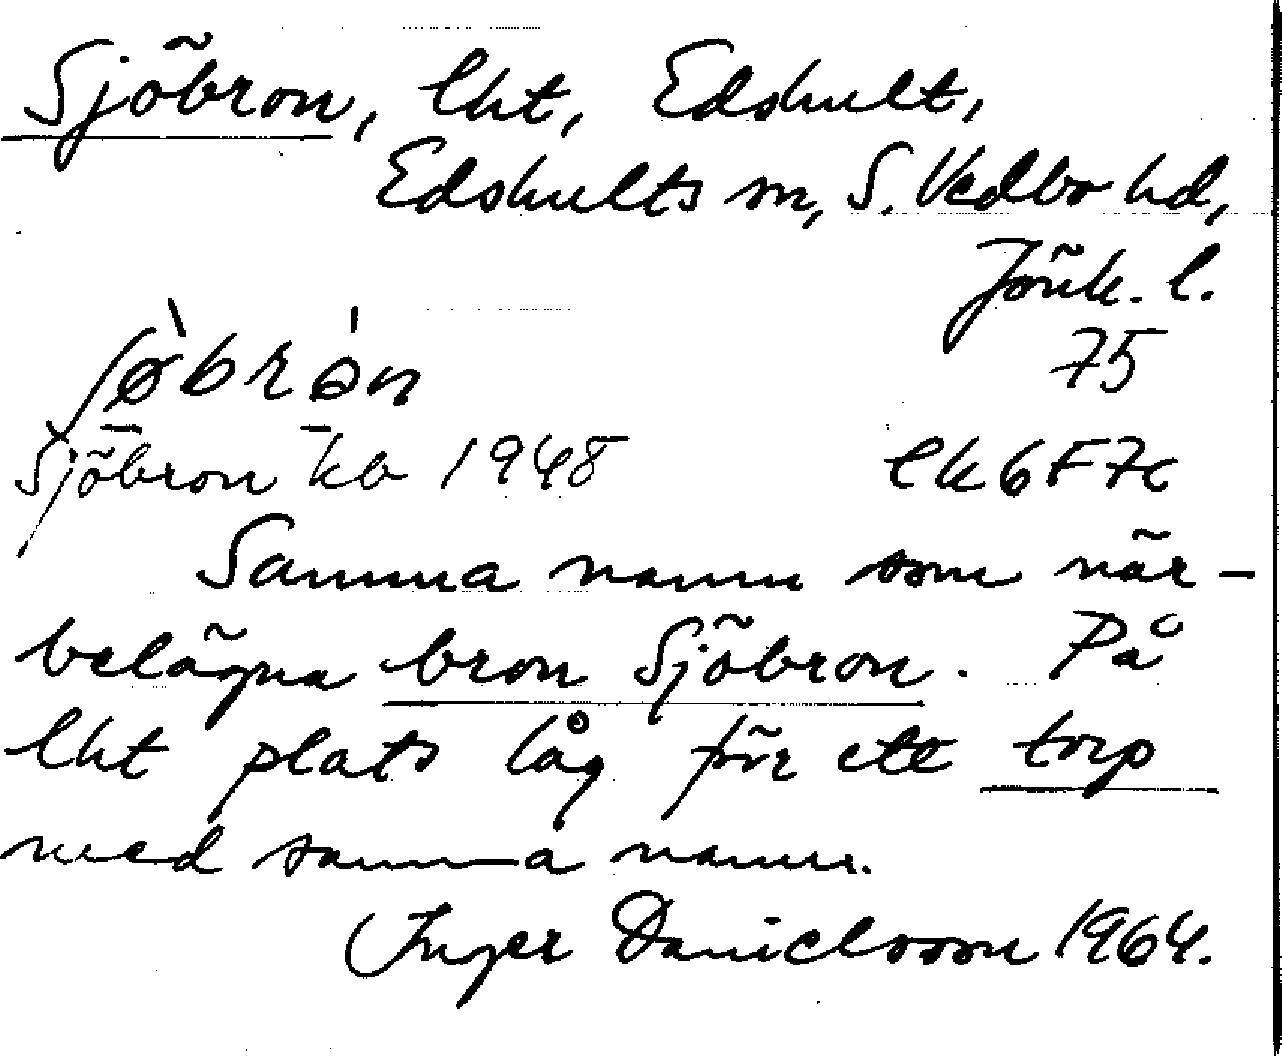 Sjöbron, lht, Edshult,
Edshults sn, S. Vedbo hd,
Jönk. l.
75
Sjöbron kb 1948 ek 6F7c
Samma namn som när-
belägna bron Sjöbron. På
lht plats låg förr ett torp
med samma namn.
Inger Danielsson 1964.